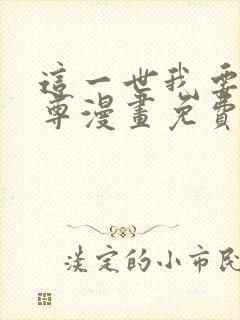 這一世我要
尊漫畫免費
淡定的小市民